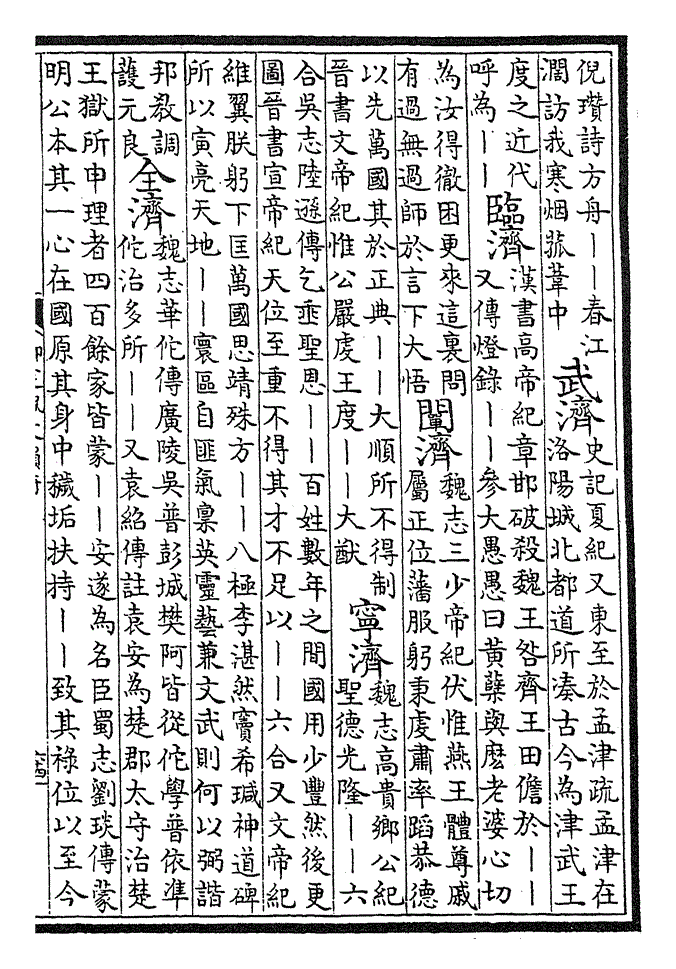 倪瓚詩方舟——春江
濶訪我寒烟菰葦中
武濟
史記夏紀又東至於孟津疏孟津在
洛陽城北都道所湊古今為津武王
度之近代
呼為——
臨濟
漢書高帝紀章邯破殺魏王咎齊王田儋於——
又傳燈錄——參大愚愚曰黃蘗與麽老婆心切
為汝得徹困更來這裏問
有過無過師於言下大悟
闡濟
魏志三少帝紀伏惟燕王體尊戚
屬正位藩服躬秉虔肅率蹈恭德
以先萬國其於正典——大順所不得制
晉書文帝紀惟公嚴虔王度——大猷
寧濟
魏志高貴鄉公紀
聖德光隆——六
合吳志陸遜傳乞垂聖恩——百姓數年之間國用少豐然後更
圖晉書宣帝紀天位至重不得其才不足以——六合又文帝紀
維翼朕躬下匡萬國思靖殊方——八極李湛然竇希瑊神道碑
所以寅亮天地——寰區自匪氣稟英靈藝兼文武則何以弼諧
邦教調
護元良
全濟
魏志華佗傳廣陵吳普彭城樊阿皆從佗學普依凖
佗治多所——又袁紹傳註袁安為楚郡太守治楚
王獄所申理者四百餘家皆蒙——安遂為名臣蜀志劉琰傳蒙
明公本其一心在國原其身中穢垢扶持——致其祿位以至今